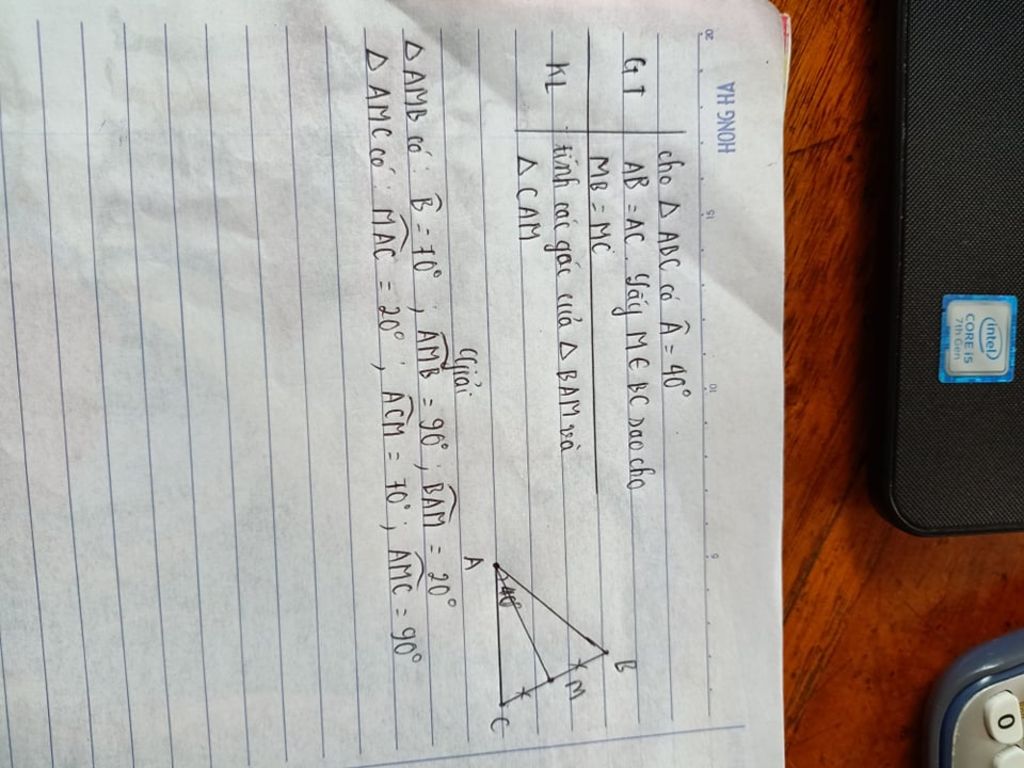 HONG HA
20
15
10
5
cho Δ ABC có Â = 40°
GT AB = AC. Lấy M ∈ BC sao cho
MB = MC
KL tính các góc của Δ BAM và
Δ CAM
Giải
Δ AMB có: B̂ = 70°; AMB = 90°; BAM = 20°
Δ AMC có: MAC = 20°; ACM = 70°; AMC = 90°
A
40°
B
M
C
intel
CORE i5
7th Gen
0